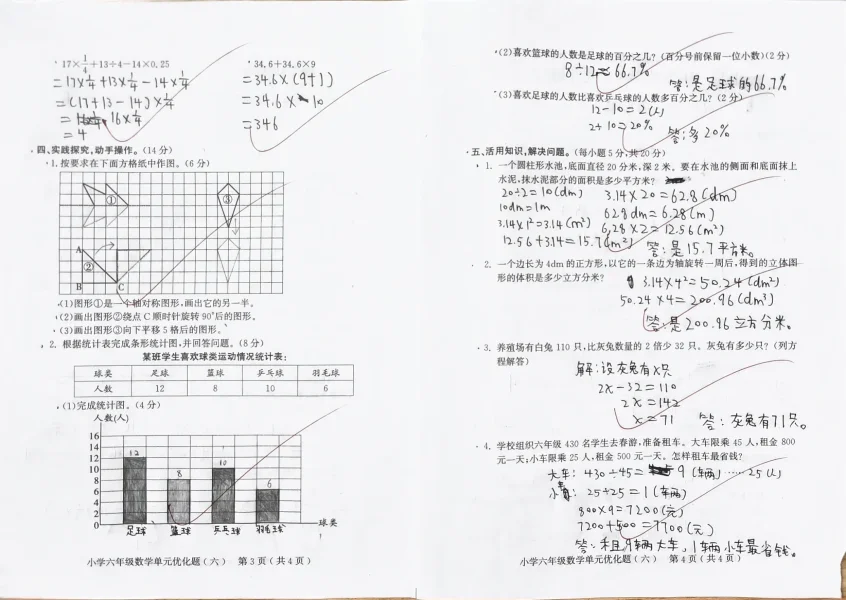 17×1/4+13÷4-14×0.25
=17×1/4+13×1/4-14×1/4
=(17+13-14)×1/4
=16×1/4
=4
34.6+34.6×9
=34.6×(9+1)
=34.6×10
=346
四、实践探究,动手操作。(14分)
1.按要求在下面方格纸中作图。(6分)
①
③
A
②
B C
(1)图形①是一个轴对称图形,画出它的另一半。
(2)画出图形②绕点C顺时针旋转90°后的图形。
(3)画出图形③向下平移5格后的图形。
2.根据统计表完成条形统计图,并回答问题。(8分)
某班学生喜欢球类运动情况统计表:
球类 足球 篮球 乒乓球 羽毛球
人数 12 8 10 6
(1)完成统计图。(4分)
人数(人)
16
14
12
10
8
6
4
2
0
12 8 10 6
足球 篮球 乒乓球 羽毛球 球类
小学六年级数学单元优化题(六) 第3页(共4页)
(2)喜欢篮球的人数是足球的百分之几?(百分号前保留一位小数)(2分)
8÷12≈66.7%
答:是足球的66.7%
(3)喜欢足球的人数比喜欢乒乓球的人数多百分之几?(2分)
12-10=2(人)
2÷10=20%
答:多20%
五、活用知识,解决问题。(每小题5分,共20分)
1.一个圆柱形水池,底面直径20分米,深2米。要在水池的侧面和底面抹上
水泥,抹水泥部分的面积是多少平方米?
20÷2=10(dm) 3.14×20=62.8(dm)
10dm=1m 62.8dm=6.28(m)
3.14×1²=3.14(m²) 6.28×2=12.56(m²)
12.56+3.14=15.7(m²) 答:是15.7平方米。
2.一个边长为4dm的正方形,以它的一条边为轴旋转一周后,得到的立体图
形的体积是多少立方分米?
3.14×4²=50.24(dm²)
50.24×4=200.96(dm³)
答:是200.96立方分米。
3.养殖场有白兔110只,比灰兔数量的2倍少32只。灰兔有多少只?(列方
程解答)
解:设灰兔有x只
2x-32=110
2x=142
x=71
答:灰兔有71只。
4.学校组织六年级430名学生去春游,准备租车。大车限乘45人,租金800
元一天;小车限乘25人,租金500元一天。怎样租车最省钱?
大车:430÷45=9(辆)……25(人)
小车:25÷25=1(辆)
800×9=7200(元)
7200+500=7700(元)
答:租9辆大车,1辆小车最省钱。
小学六年级数学单元优化题(六) 第4页(共4页)